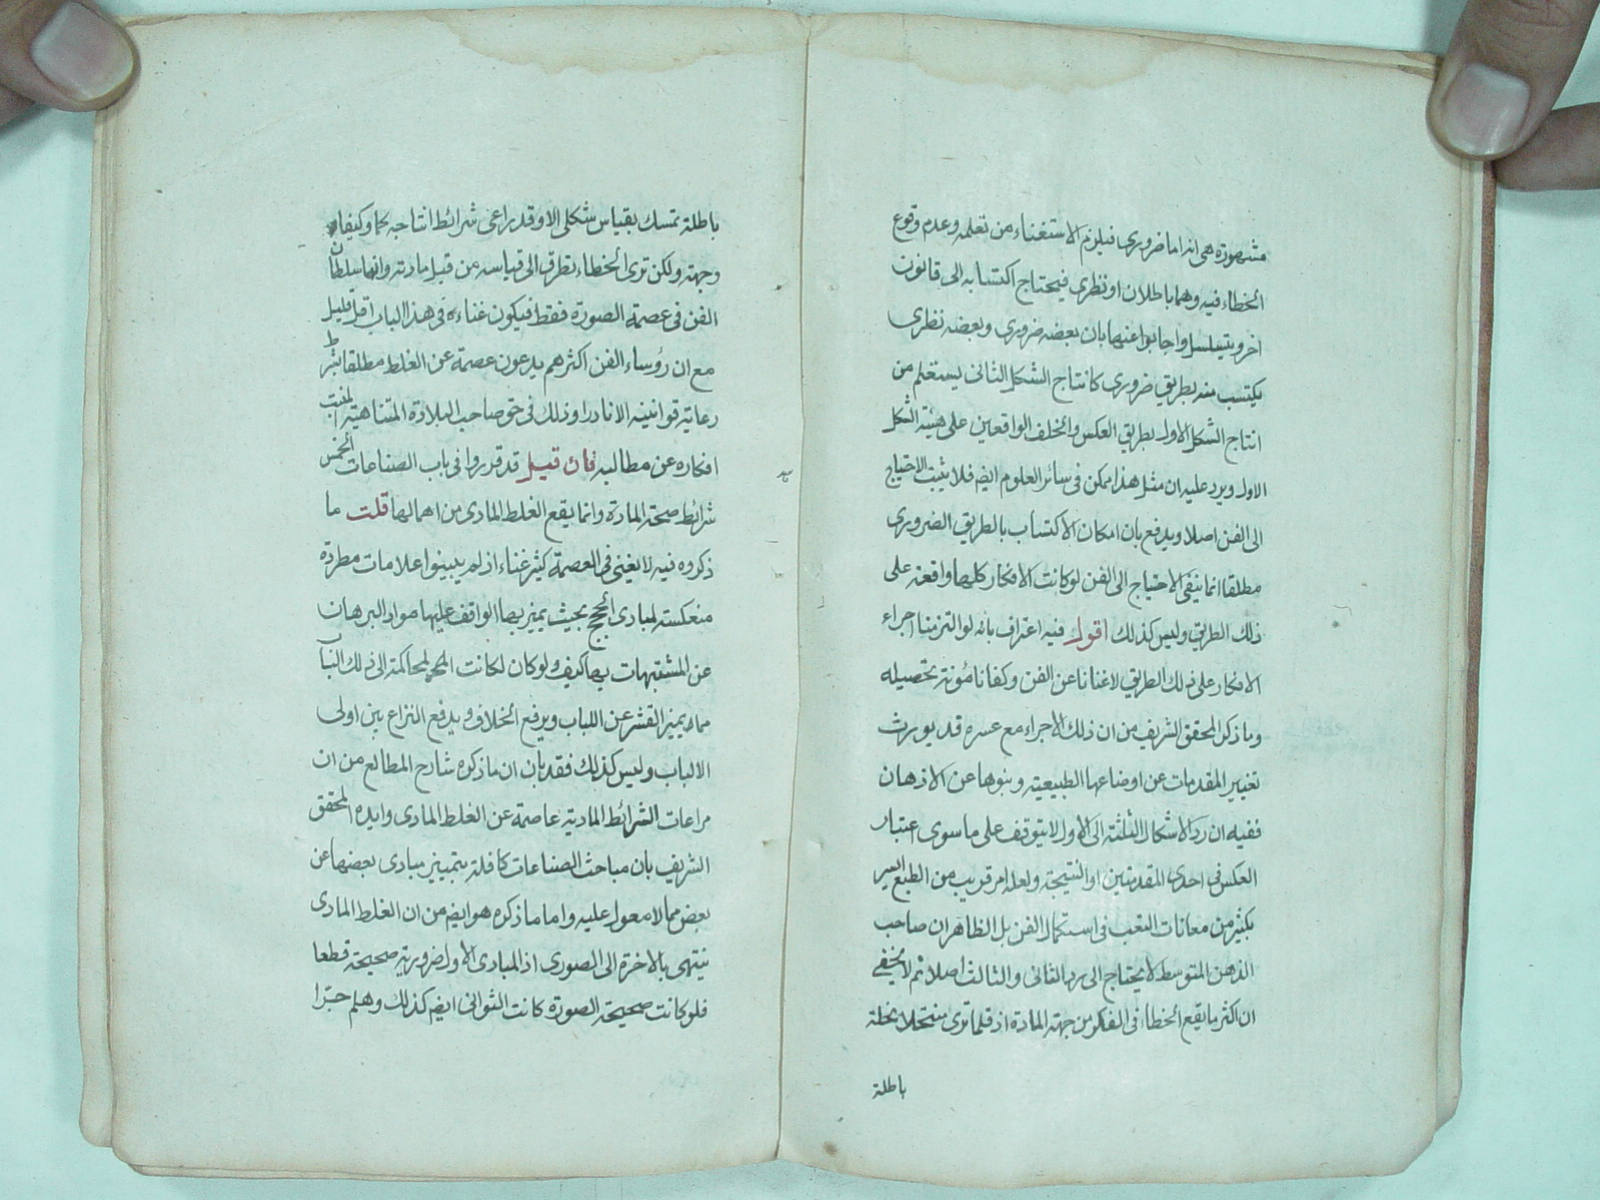 مشهورة هى انه اما ضرورى فيلزم الاستغناء من تعلمه وعدم وقوع
الخطاء فيه وهما باطلان او نظرى فيحتاج اكتسابه الى قانون
اخر ويتسلسل واجابوا عنها بان بعضه ضرورى وبعضه نظرى
يكتسب منه بطريق ضرورى كانتاج الشكل الثانى يستعلم من
انتاج الشكل الاول بطريق العكس والخلف الواقعين على هيئة الشكل
الاول ويرد عليه ان مثل هذا يمكن فى سائر العلوم ايضم فلا يثبت الاحتياج
الى الفن اصلا ويدفع بان امكان الاكتساب بالطريق الضرورى
مطلقا انما ينفى الاحتياج الى الفن لو كانت الافكار كلها واقعة على
ذلك الطريق وليس كذلك اقول فيه اعتراف بانه لو التزمنا اجراء
الافكار على ذلك الطريق لاغنانا عن الفن وكفانا مؤنة تحصيله
وما ذكر المحقق الشريف من ان ذلك الاجراء مع عسره قد يورث
تغيير المقدمات عن اوضاعها الطبيعية وبنوها عن الاذهان
ففيه ان رد الاشكال الثلثة الى الاول لا يتوقف على ما سوى اعتبار
العكس فى احدى المقدمتين او النتيجة ولعله امر قريب من الطبع ايسر
بكثير من معانات التعب فى استكمال الفن بل الظاهر ان صاحب
الذهن المتوسط لا يحتاج الى رد الثانى والثالث اصلا ثم لا يخفى
ان اكثر ما يقع الخطاء فى الفكر من جهة المادة اذ قلما ترى منتحلا بنحلة
باطلة
باطلة تمسك بقياس شكلى الا وقد راعى شرائط انتاجه كما وكيفا و
وجهة ولكن ترى الخطاء يطرق الى قياسه من قبل مادته وانما سلطان
الفن فى عصمة الصورة فقط فيكون غناءه فى هذا الباب اقل قليل
مع ان رؤساء الفن اكثرهم يدعون عصمة عن الغلط مطلقا بشرط
رعاية قوانينه الا نادرا وذلك فى حق صاحب البلادة المتناهية
افكاره عن مطالبه فان قيل قد قرروا فى باب الصناعات الخمس
شرائط صحة المادة وانما يقع الغلط المادى من اهمالها قلت ما
ذكروه فيه لا يغنى فى العصمة كثير غناء اذ لم يبينوا علامات مطردة
منعكسة لمبادى الحجج بحيث يميز بها الواقف عليها مواد البرهان
عن المشتبهات بها كيف ولو كان لكانت المحاكمة الى ذلك
مما يميز القشر عن اللباب ويرفع الخلاف ويدفع النزاع بين اولى
الالباب وليس كذلك فقد بان ان ما ذكره شارح المطالع من ان
مراعات الشرائط المادية عاصمة عن الغلط المادى وايده المحقق
الشريف بان مباحث الصناعات كافلة بتمييز مبادى بعضها عن
بعض مما لا معول عليه واما ما ذكره هو ايضم من ان الغلط المادى
ينتهى بالاخرة الى الصورى اذ المبادى الاول ضرورية صحيحة قطعا
فلو كانت صحيحة الصورة كانت الثوانى ايضم كذلك وهلم جرا